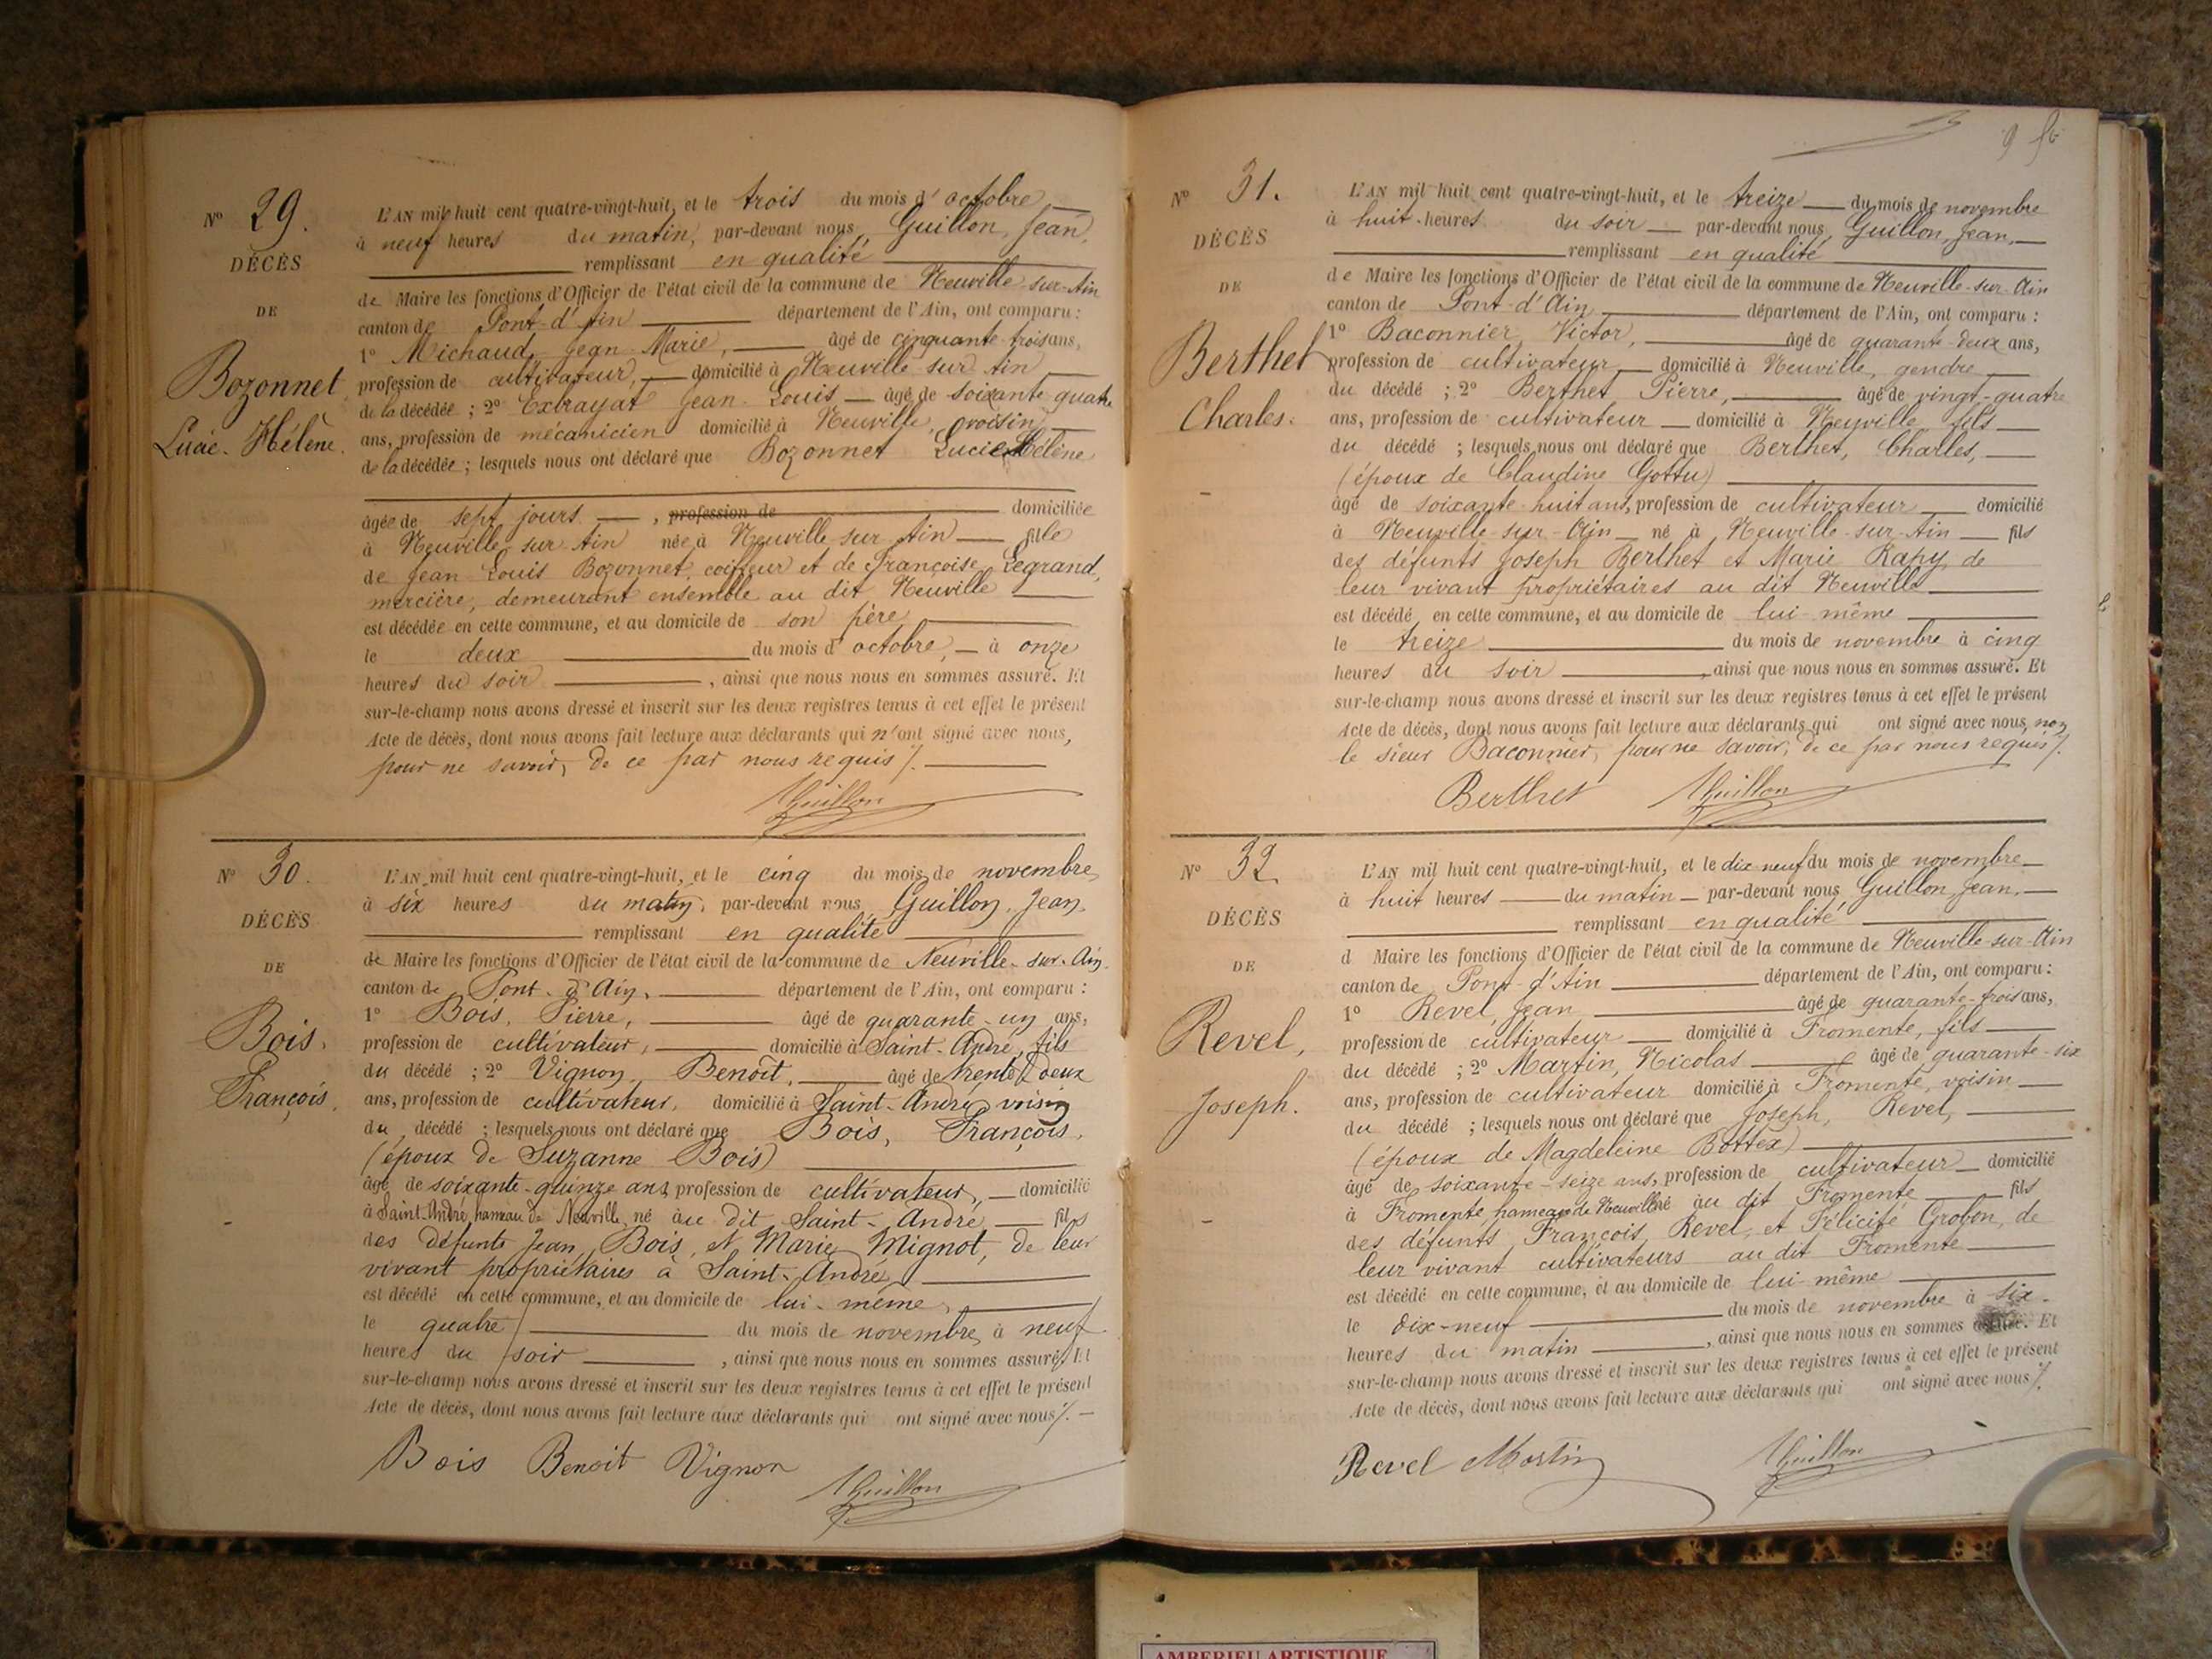 Nº 29.
DÉCÈS
DE
Bozonnet
Lucie-Hélène.
L'AN mil huit cent quatre-vingt-huit, et le trois du mois d'octobre
à neuf heures du matin, par-devant nous Guillon, Jean,
remplissant en qualité
de Maire les fonctions d'Officier de l'état civil de la commune de Neuville-sur-Ain
canton de Pont-d'Ain département de l'Ain, ont comparu :
1º Michaud, Jean-Marie, âgé de cinquante-trois ans,
profession de cultivateur, domicilié à Neuville-sur-Ain
de la décédée ; 2º Extrayat Jean-Louis âgé de soixante quatre
ans, profession de mécanicien domicilié à Neuville, voisin
de la décédée ; lesquels nous ont déclaré que Bozonnet Lucie Hélène
âgée de sept jours, profession de domiciliée
à Neuville-sur-Ain née à Neuville-sur-Ain fille
de Jean-Louis Bozonnet, coiffeur et de Françoise Legrand,
mercière, demeurant ensemble au dit Neuville
est décédée en cette commune, et au domicile de son père
le deux du mois d'octobre, à onze
heures du soir, ainsi que nous nous en sommes assuré. Et
sur-le-champ nous avons dressé et inscrit sur les deux registres tenus à cet effet le présent
Acte de décès, dont nous avons fait lecture aux déclarants qui n'ont signé avec nous,
pour ne savoir, de ce par nous requis ./.
Guillon
Nº 30.
DÉCÈS
DE
Bois,
François.
L'AN mil huit cent quatre-vingt-huit, et le cinq du mois de novembre
à six heures du matin, par-devant nous Guillon, Jean,
remplissant en qualité
de Maire les fonctions d'Officier de l'état civil de la commune de Neuville-sur-Ain
canton de Pont-d'Ain, département de l'Ain, ont comparu :
1º Bois, Pierre, âgé de quarante-un ans,
profession de cultivateur, domicilié à Saint-André, fils
du décédé ; 2º Vignon, Benoît, âgé de trente deux
ans, profession de cultivateur, domicilié à Saint-André voisin
du décédé ; lesquels nous ont déclaré que Bois, François,
(époux de Suzanne Bois)
âgé de soixante-quinze ans, profession de cultivateur, domicilié
à Saint-André, hameau de Neuville, né au dit Saint-André fils
des défunts Jean Bois, et Marie Mignot, de leur
vivant propriétaires à Saint-André,
est décédé en cette commune, et au domicile de lui-même,
le quatre du mois de novembre, à neuf
heures du soir, ainsi que nous nous en sommes assuré. Et
sur-le-champ nous avons dressé et inscrit sur les deux registres tenus à cet effet le présent
Acte de décès, dont nous avons fait lecture aux déclarants qui ont signé avec nous ./.
Bois Benoit Vignon Guillon
9
Nº 31.
DÉCÈS
DE
Berthet
Charles.
L'AN mil huit cent quatre-vingt-huit, et le treize du mois de novembre
à huit heures du soir par-devant nous Guillon, Jean,
remplissant en qualité
de Maire les fonctions d'Officier de l'état civil de la commune de Neuville-sur-Ain
canton de Pont-d'Ain département de l'Ain, ont comparu :
1º Baconnier, Victor, âgé de quarante-deux ans,
profession de cultivateur domicilié à Neuville, gendre
du décédé ; 2º Berthet Pierre, âgé de vingt-quatre
ans, profession de cultivateur domicilié à Neuville fils
du décédé ; lesquels nous ont déclaré que Berthet, Charles,
(époux de Claudine Gottu)
âgé de soixante-huit ans, profession de cultivateur domicilié
à Neuville-sur-Ain né à Neuville-sur-Ain fils
des défunts Joseph Berthet et Marie Rapy, de
leur vivant propriétaires au dit Neuville
est décédé en cette commune, et au domicile de lui-même
le treize du mois de novembre à cinq
heures du soir, ainsi que nous nous en sommes assuré. Et
sur-le-champ nous avons dressé et inscrit sur les deux registres tenus à cet effet le présent
Acte de décès, dont nous avons fait lecture aux déclarants qui ont signé avec nous, non
le sieur Baconnier, pour ne savoir, de ce par nous requis ./.
Berthet Guillon
Nº 32
DÉCÈS
DE
Revel,
Joseph.
L'AN mil huit cent quatre-vingt-huit, et le dix neuf du mois de novembre
à huit heures du matin par-devant nous Guillon, Jean,
remplissant en qualité
d Maire les fonctions d'Officier de l'état civil de la commune de Neuville-sur-Ain
canton de Pont-d'Ain département de l'Ain, ont comparu :
1º Revel, Jean âgé de quarante-trois ans,
profession de cultivateur domicilié à Fromente, fils
du décédé ; 2º Martin, Nicolas âgé de quarante-six
ans, profession de cultivateur domicilié à Fromente, voisin
du décédé ; lesquels nous ont déclaré que Joseph, Revel,
(époux de Magdeleine Bottex)
âgé de soixante-seize ans, profession de cultivateur domicilié
à Fromente hameau de Neuville né au dit Fromente fils
des défunts François Revel, et Félicité Grobon, de
leur vivant cultivateurs au dit Fromente
est décédé en cette commune, et au domicile de lui-même
le dix-neuf du mois de novembre à six
heures du matin, ainsi que nous nous en sommes assuré. Et
sur-le-champ nous avons dressé et inscrit sur les deux registres tenus à cet effet le présent
Acte de décès, dont nous avons fait lecture aux déclarants qui ont signé avec nous ./.
Revel Martin Guillon
AMBERIEU ARTISTIQUE